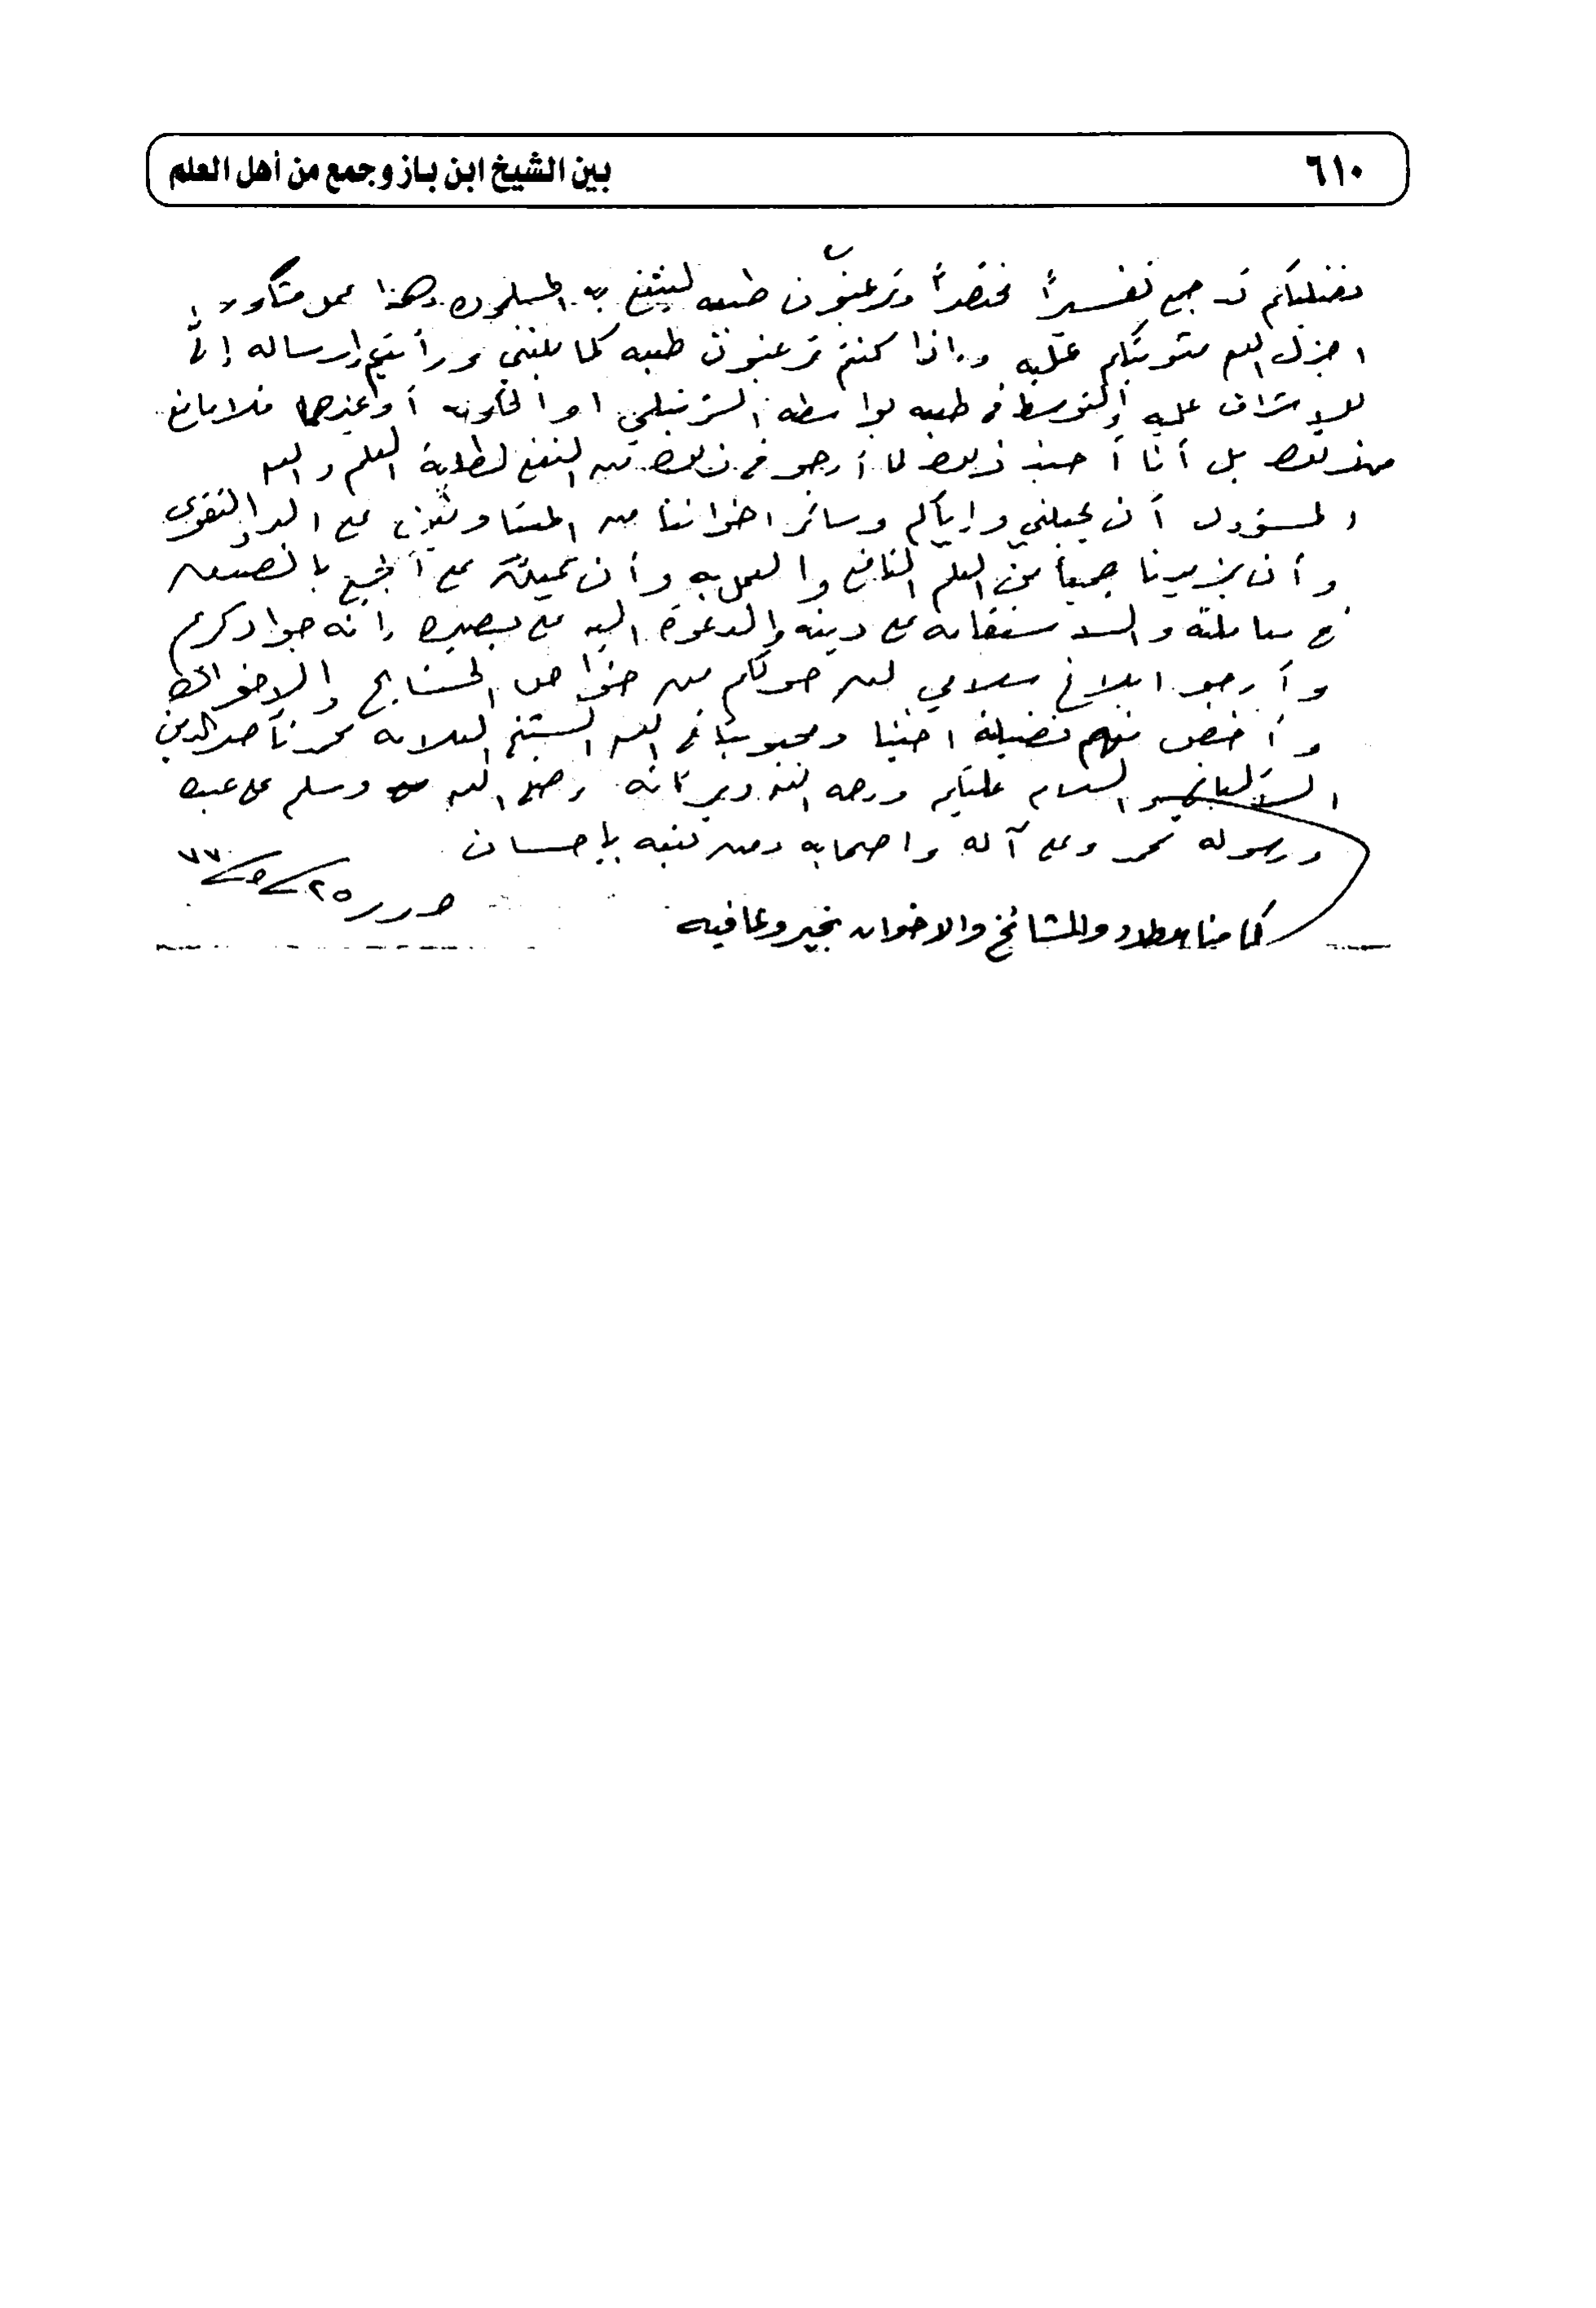 ٦١٠
بين الشيخ ابن باز وجمع من أهل العلم
فضيلتكم قد جمع تفسيراً مختصراً وترغبون طبعه لينتفع به المسلمون وهذا عمل مشكور
اجزل الله مثوبتكم عليه واذا كنتم ترغبون طبعه كما بلغني ورأيتم ارساله إليَّ
للاشراف عليه والتوسط في طبعه بواسطة الشربتلي او أو غيرهما فلا مانع
من ذلك بل أنا أحبذ ذلك لما أرجو في ذلك من النفع لطلبة العلم والله
المسؤول أن يجعلني واياكم وسائر اخواننا من المتعاونين على البر والتقوى
وأن يزيدنا جميعا من العلم النافع والعمل به وأن يمن على الجميع بالصدق
في معاملته والاستقامه على دينه والدعوة اليه على بصيره انه جواد كريم
وأرجو ابلاغ سلامي لمن حولكم من خواص المشايخ والاخوان
وأخص منهم فضيلة اخينا ومحبوبنا في الله الشيخ العلامه محمد ناصر الدين
الالباني والسلام عليكم ورحمة الله وبركاته وصلى الله وسلم على عبده
ورسوله محمد وعلى آله واصحابه ومن تبعه بإحسان
حرر ٢٥/٥/٧٧
كما منا الاولاد والمشائخ والاخوان بخير وعافيه